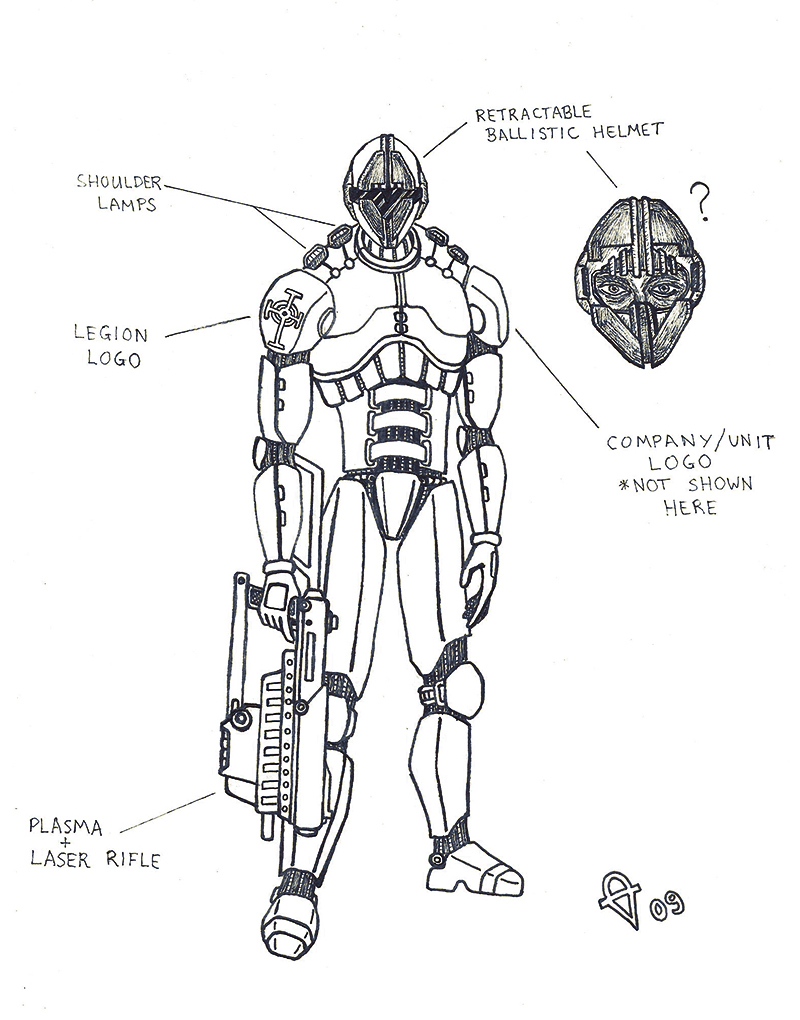 RETRACTABLE
BALLISTIC HELMET
?
SHOULDER
LAMPS
LEGION
LOGO
COMPANY/UNIT
LOGO
*NOT SHOWN
HERE
PLASMA
+
LASER RIFLE
09